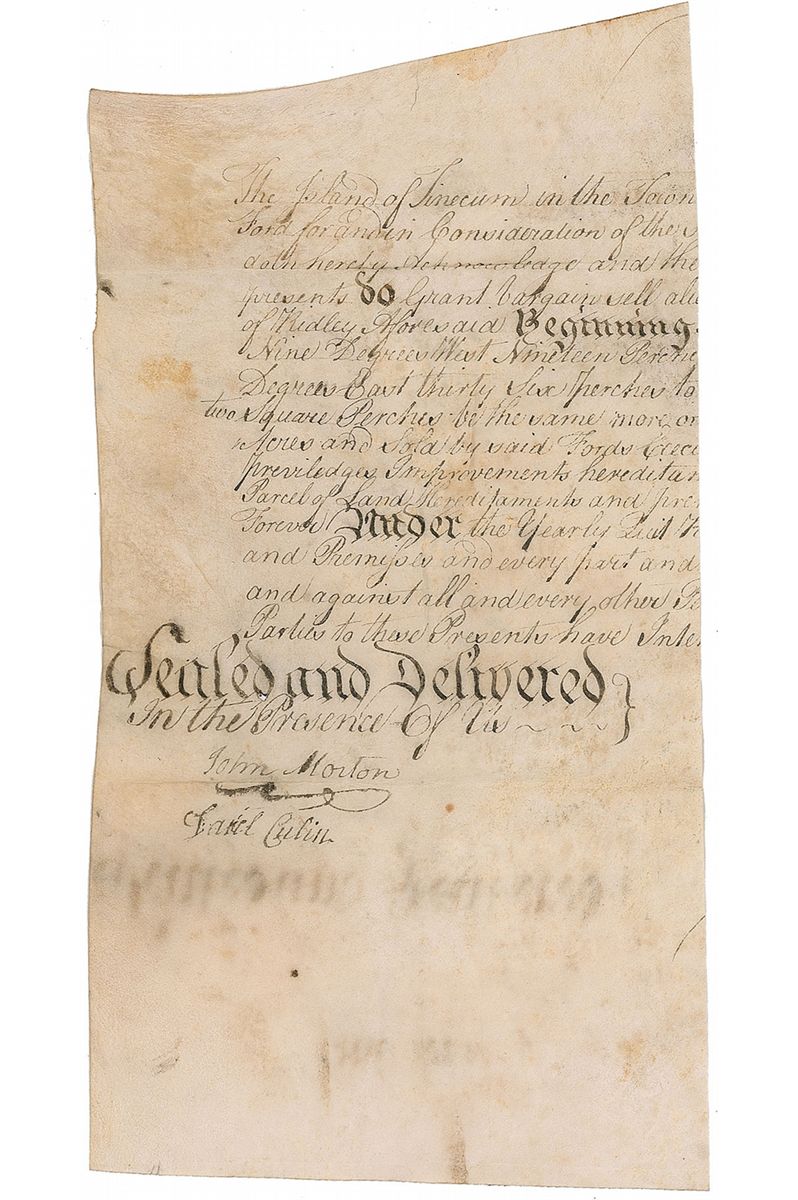 The Island of Tinecum in the Town
Ford for and in Consideration of the
doth hereby Acknowledge and the
presents do Grant bargain sell
of Ridley Aforesaid Beginning
Nine Degrees West Nineteen Perche
Degrees East thirty Six perches to
two Square Perches be the same more or
Acres and Sold by said Fords
previledges Improvements hereditam
Parcel of Land Hereditaments and pre
Forever Under the Yearly Quit
and Premisses and every part and
and against all and every other
Parties to these Presents have Inte
Sealed and Delivered }
In the Presence Of Us ~ ~ ~
John Morton
Culin